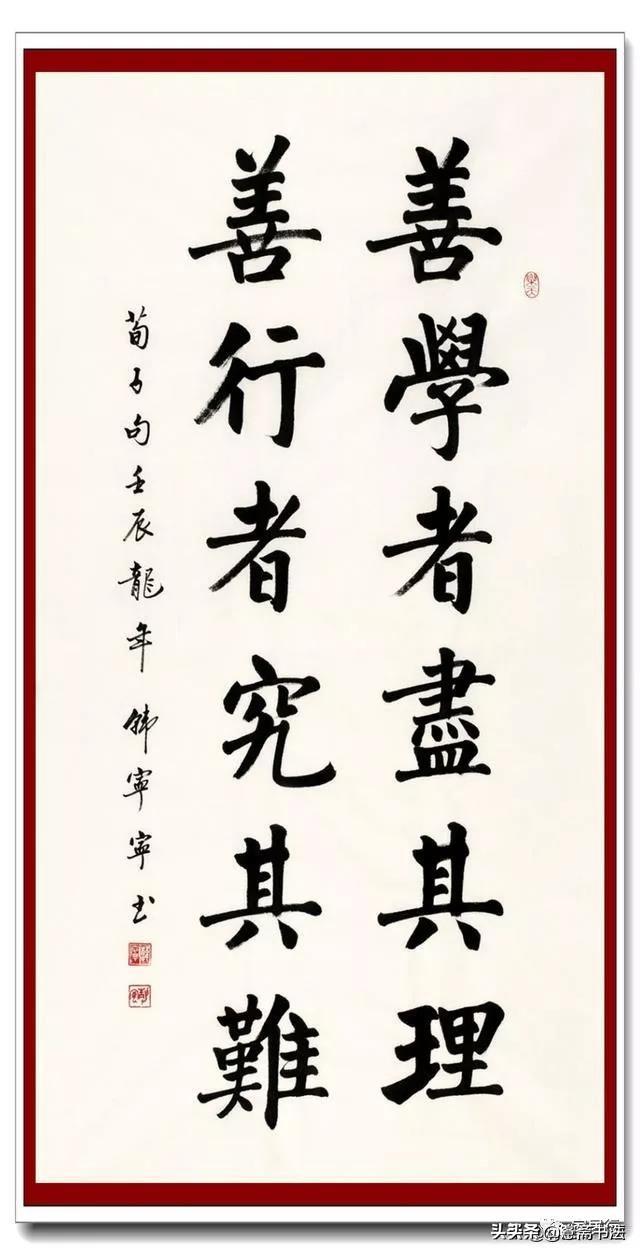 善學者盡其理
善行者究其難
荀子句壬辰龍年韓寧寧书
头条@
书法